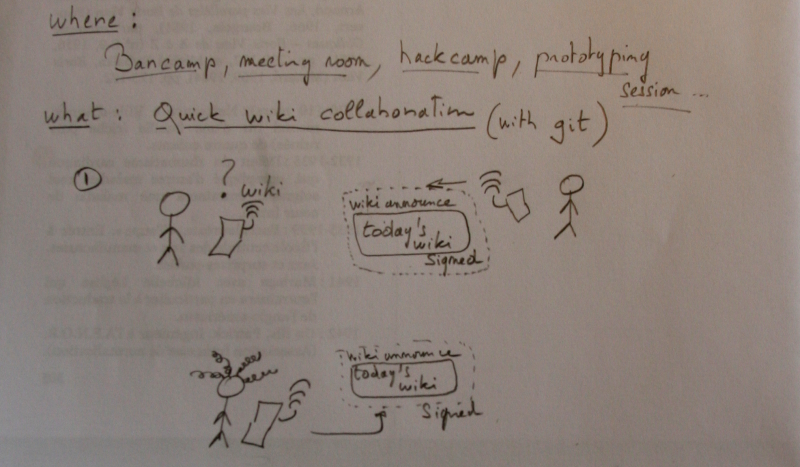 where :
Barcamp, meeting room, hackcamp, prototyping
session ...
what : Quick wiki collaboration (with git)
①
? wiki
wiki announce
today's
wiki
Signed
wiki announce
today's
wiki
Signed